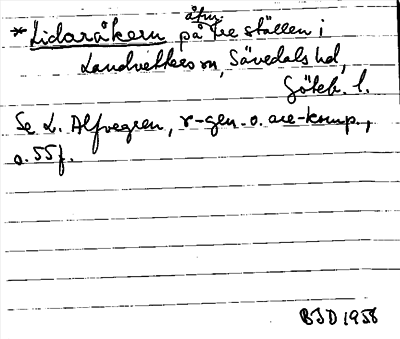 *Lidaråkern på åtm. tre ställen i
Landvetters sn, Sävedals hd,
Göteb. l.
Se L. Alfvegren, r-gen. o. are-komp.,
s. 55 f.
BJD 1958